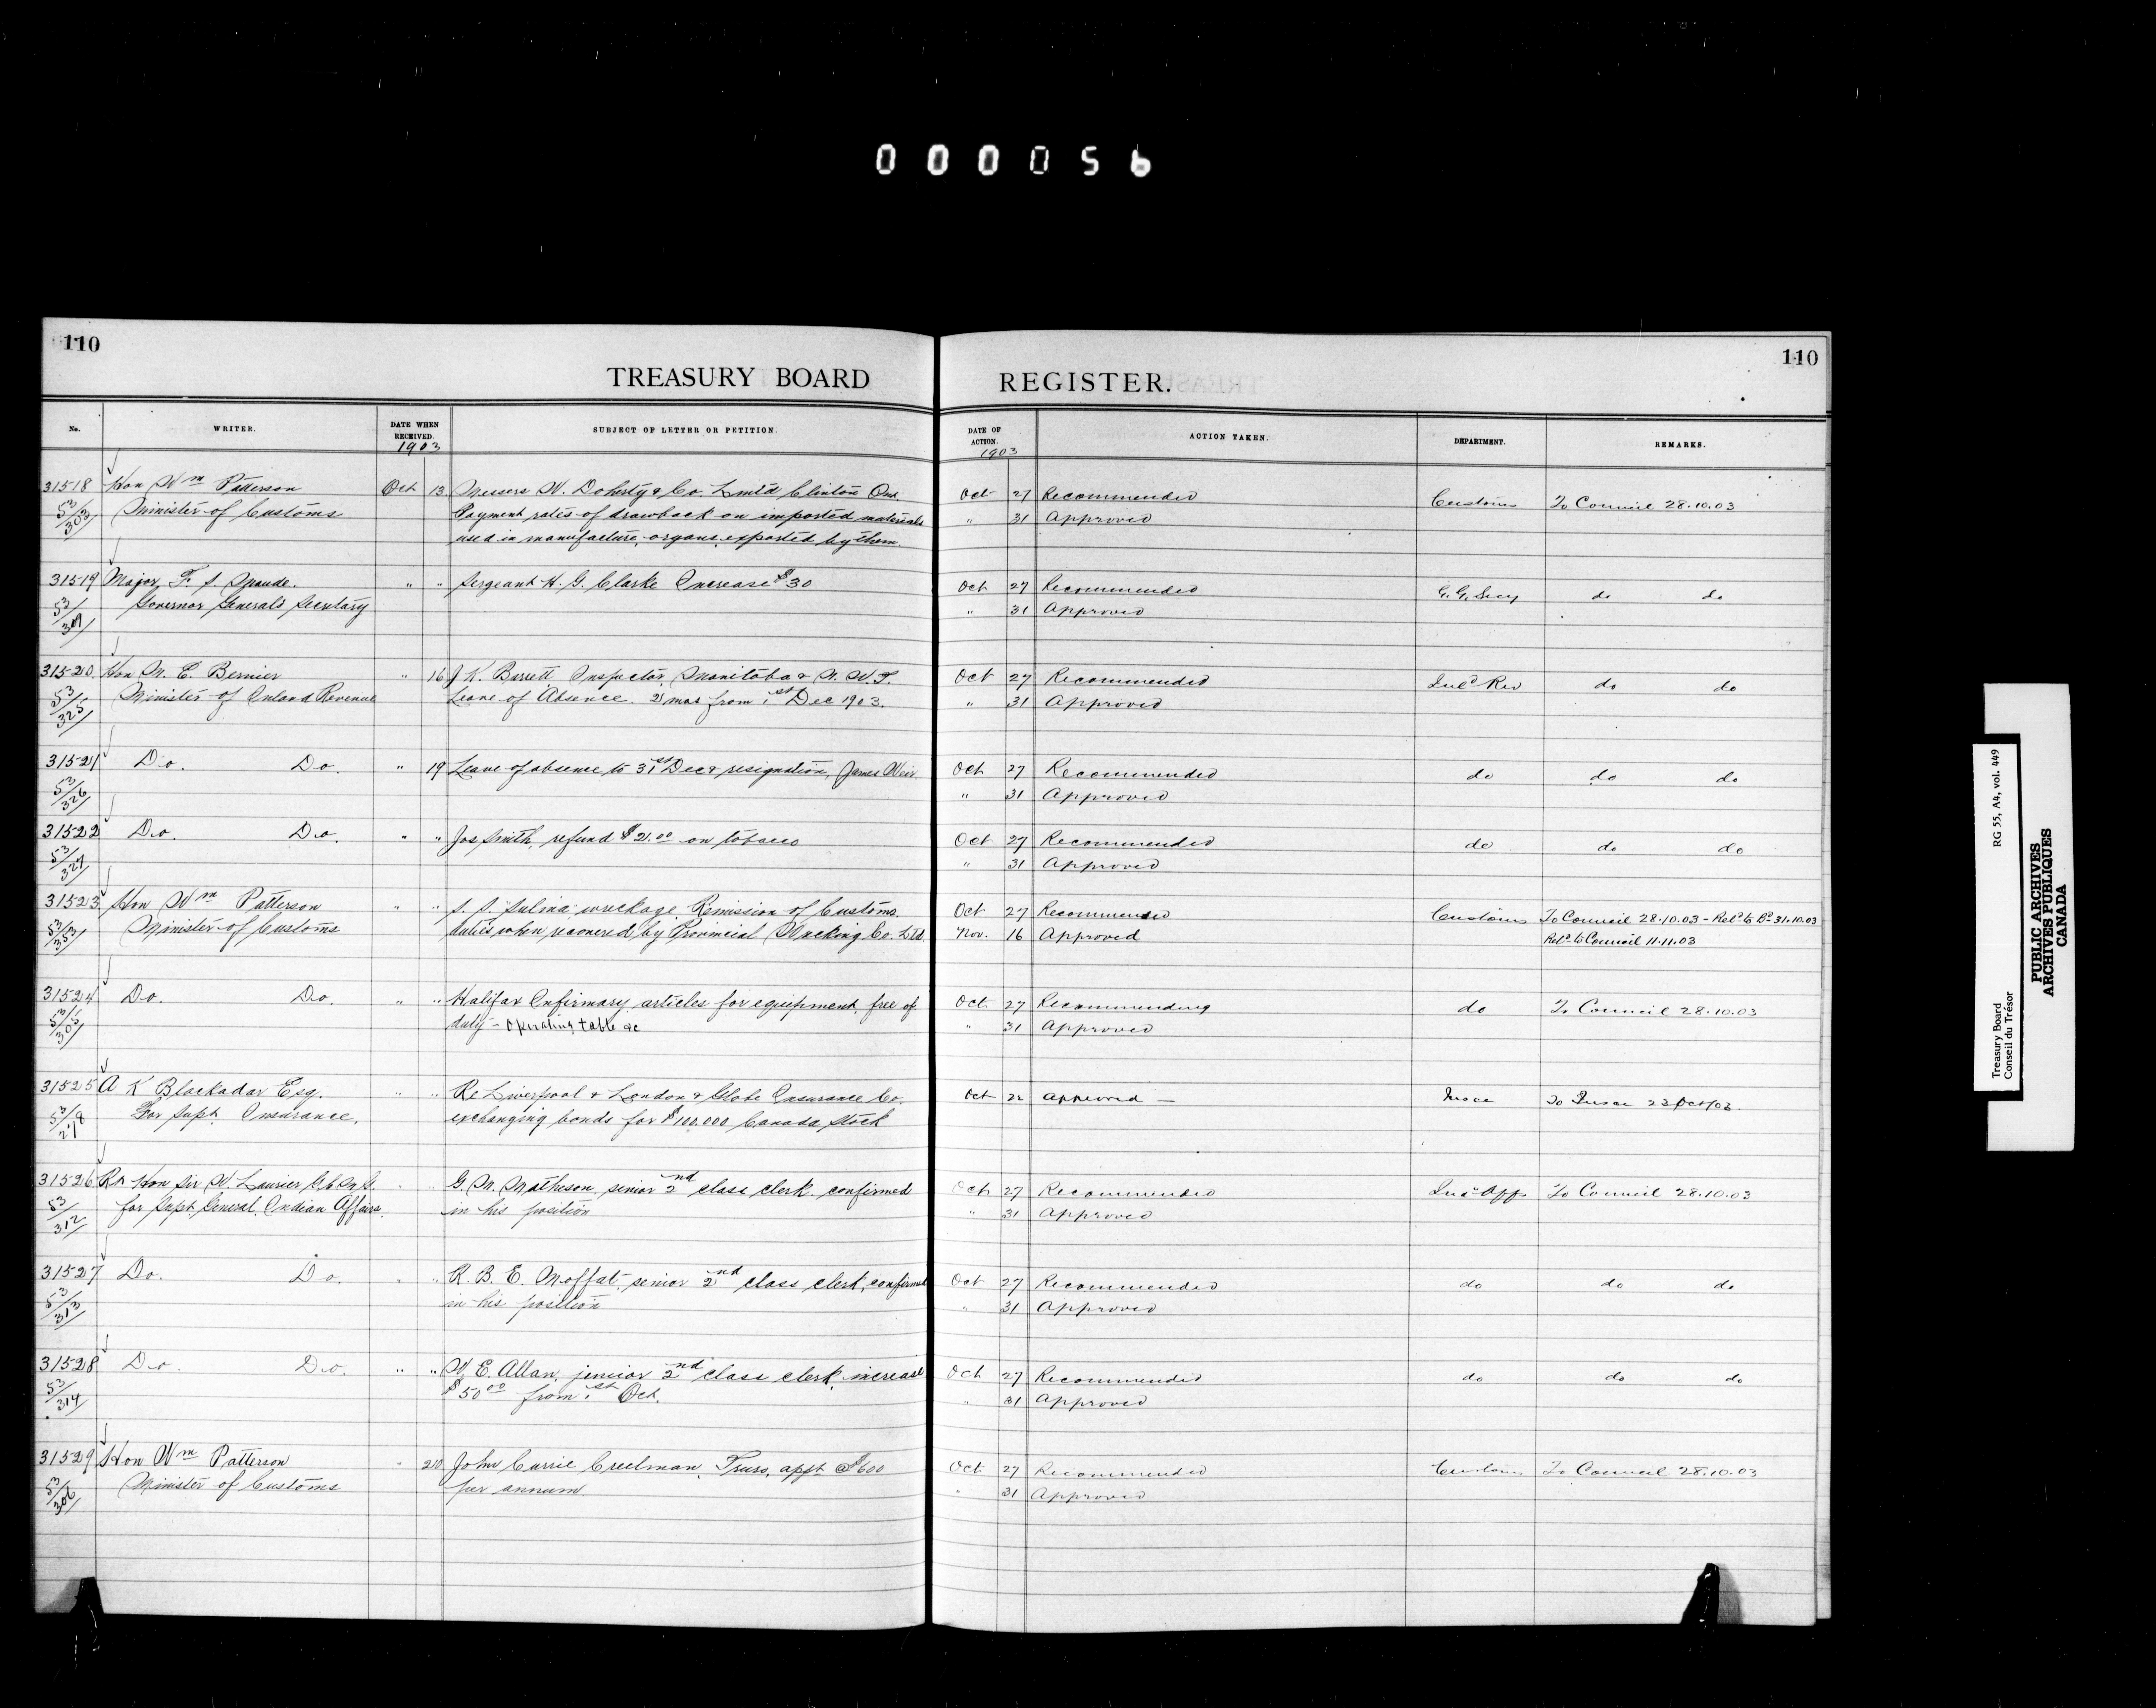 000056
110
TREASURY BOARD
REGISTER.
110
No. WRITER. DATE WHEN RECEIVED. 1903 SUBJECT OF LETTER OR PETITION. DATE OF ACTION. 1903 ACTION TAKEN. DEPARTMENT. REMARKS.
31518 Hon Wm Patterson Oct 13 Messers W. Doherty & Co Lmtd Clinton Ont Oct 27 Recommended Customs To Council 28.10.03
53/303 Minister of Customs Payment rates of drawback on imported materials " 31 Approved
used in manufacture, organs exported by them.
31519 Major F. S. Maude. " " Sergeant H. G. Clarke Increase $30 Oct 27 Recommended G. G. Secy do do
53/ Governor General's Secretary " 31 Approved
31520 Hon M. E. Bernier " 16 J K. Barrett Inspector, Manitoba & N. W. T. Oct 27 Recommended Inld Rev do do
53/325 Minister of Inland Revenue Leave of Absence. 2 mos from 1st Dec 1903. " 31 Approved
31521 Do. Do. " 19 Leave of absence to 31st Dec & resignation, James Weir Oct 27 Recommended do do do
53/326 " 31 Approved
31522 Do. Do. " " Jos Smith, refund $21.00 on tobacco Oct 27 Recommended do do do
53/327 " 31 Approved
31523 Hon Wm Patterson " " S. S. Sulina wreckage. Remission of Customs Oct 27 Recommended Customs To Council 28.10.03 - Retd to Bd 31.10.03
53/353 Minister of Customs duties when recovered by Provincial Wrecking Co. Ltd Nov. 16 Approved Retd to Council 11.11.03
31524 Do. Do. " " Halifax Infirmary, articles for equipment, free of Oct 27 Recommending do To Council 28.10.03
53/305 duty - Operating table &c " 31 Approved
31525 A K Blackadar Esq. " " Re Liverpool & London & Globe Insurance Co. Oct 22 Approved — Insce To Insce 23 Oct/03.
53/218 For Supt. Insurance. exchanging bonds for $100.000 Canada Stock
31526 Rt Hon Sir W. Laurier G.C.M.G. " " G. M. Matheson, senior 2nd class clerk confirmed Oct 27 Recommended Ind Affs To Council 28.10.03
53/312 for Supt General, Indian Affairs. in his position " 31 Approved
31527 Do. Do. " " R. B. E. Moffat, senior 2nd class clerk, confirmed Oct 27 Recommended do do do
53/313 in his position " 31 Approved
31528 Do Do. " " W. E. Allan, junior 2nd class clerk, increase Oct 27 Recommended do do do
53/314 $50.00 from 1st Oct. " 31 Approved
31529 Hon Wm Patterson " 20 John Currie Creelman, Truro, appt @ $600 Oct 27 Recommended Customs To Council 28.10.03
53/306 Minister of Customs per annum. " 31 Approved
Treasury Board RG 55, A4, vol. 449
Conseil du Trésor
PUBLIC ARCHIVES
ARCHIVES PUBLIQUES
CANADA